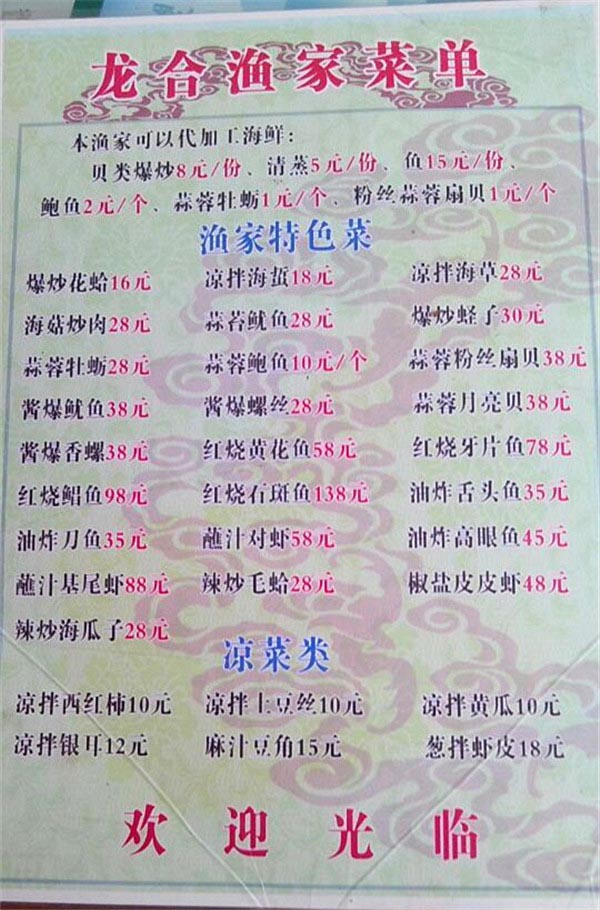 龙合渔家菜单
本渔家可以代加工海鲜：
贝类爆炒8元/份、清蒸5元/份、鱼15元/份、
鲍鱼2元/个、蒜蓉牡蛎1元/个、粉丝蒜蓉扇贝1元/个
渔家特色菜
爆炒花蛤16元 凉拌海蜇18元 凉拌海草28元
海菇炒肉28元 蒜苔鱿鱼28元 爆炒蛏子30元
蒜蓉牡蛎28元 蒜蓉鲍鱼10元/个 蒜蓉粉丝扇贝38元
酱爆鱿鱼38元 酱爆螺丝28元 蒜蓉月亮贝38元
酱爆香螺38元 红烧黄花鱼58元 红烧牙片鱼78元
红烧鲳鱼98元 红烧石斑鱼138元 油炸舌头鱼35元
油炸刀鱼35元 蘸汁对虾58元 油炸高眼鱼45元
蘸汁基尾虾88元 辣炒毛蛤28元 椒盐皮皮虾48元
辣炒海瓜子28元
凉菜类
凉拌西红柿10元 凉拌土豆丝10元 凉拌黄瓜10元
凉拌银耳12元 麻汁豆角15元 葱拌虾皮18元
欢迎光临